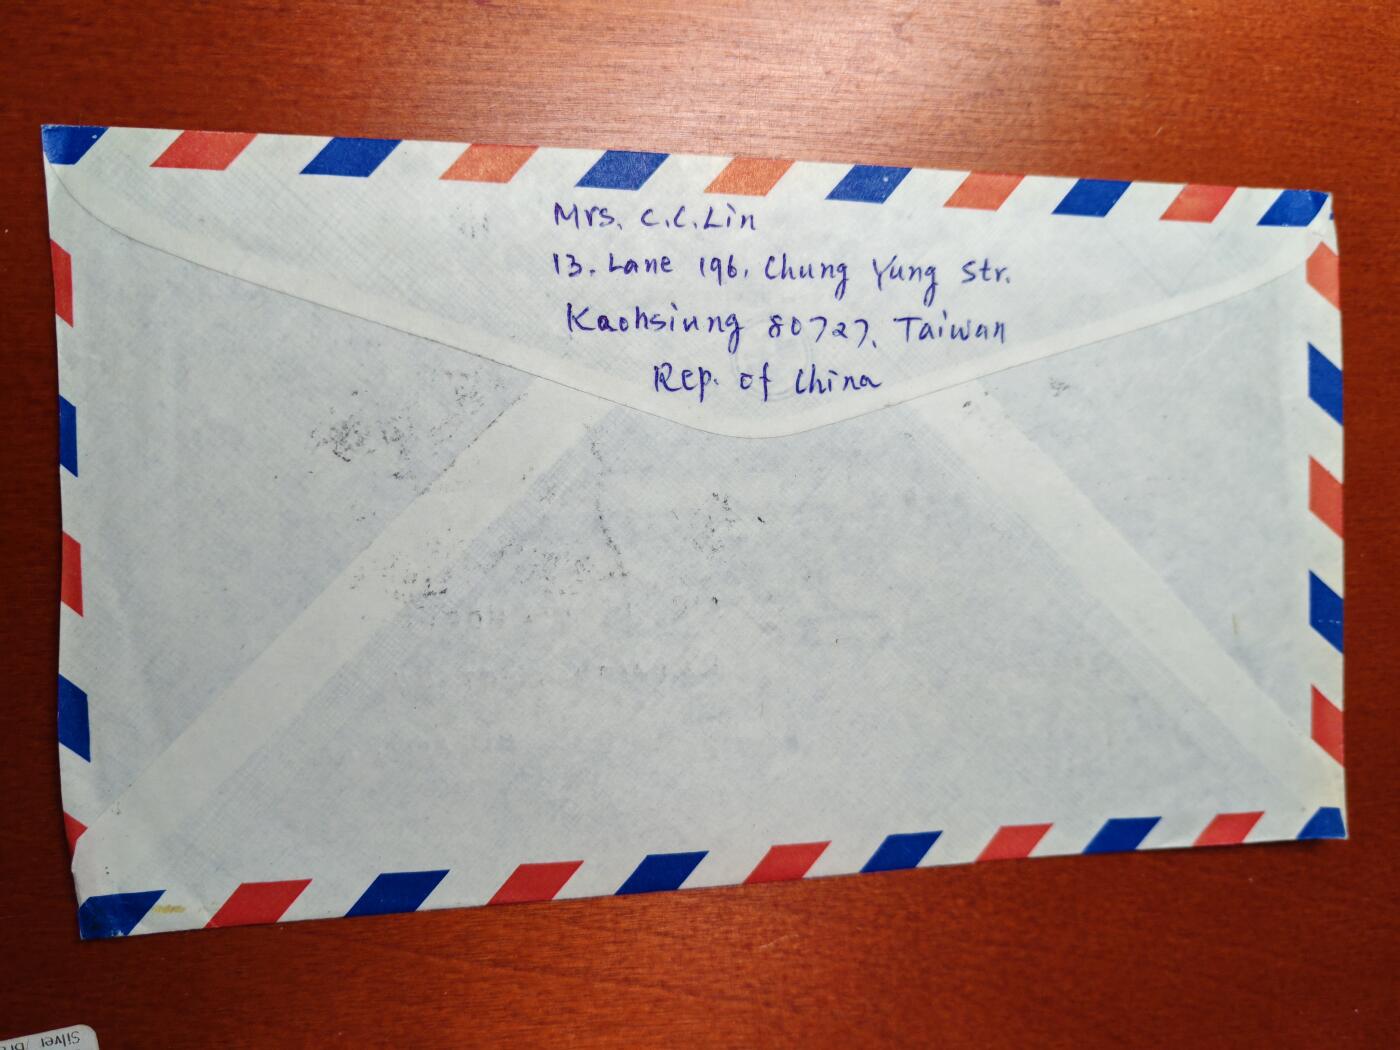 Mrs. C.C.Lin
13. Lane 196. Chung Yung Str.
Kaohsiung 80727, Taiwan
Rep. of China
Silver